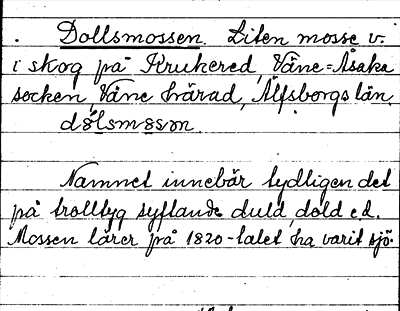 . Dollsmossen. Liten mosse v.
i skog på Krukered, Väne-Åsaka
socken, Väne härad, Älfsborgs län.
dɷlsmɷsɷn.
Namnet innebär tydligen det
på trolltyg syftande duld, dold e.d.
Mossen lärer på 1820-talet ha varit sjö.